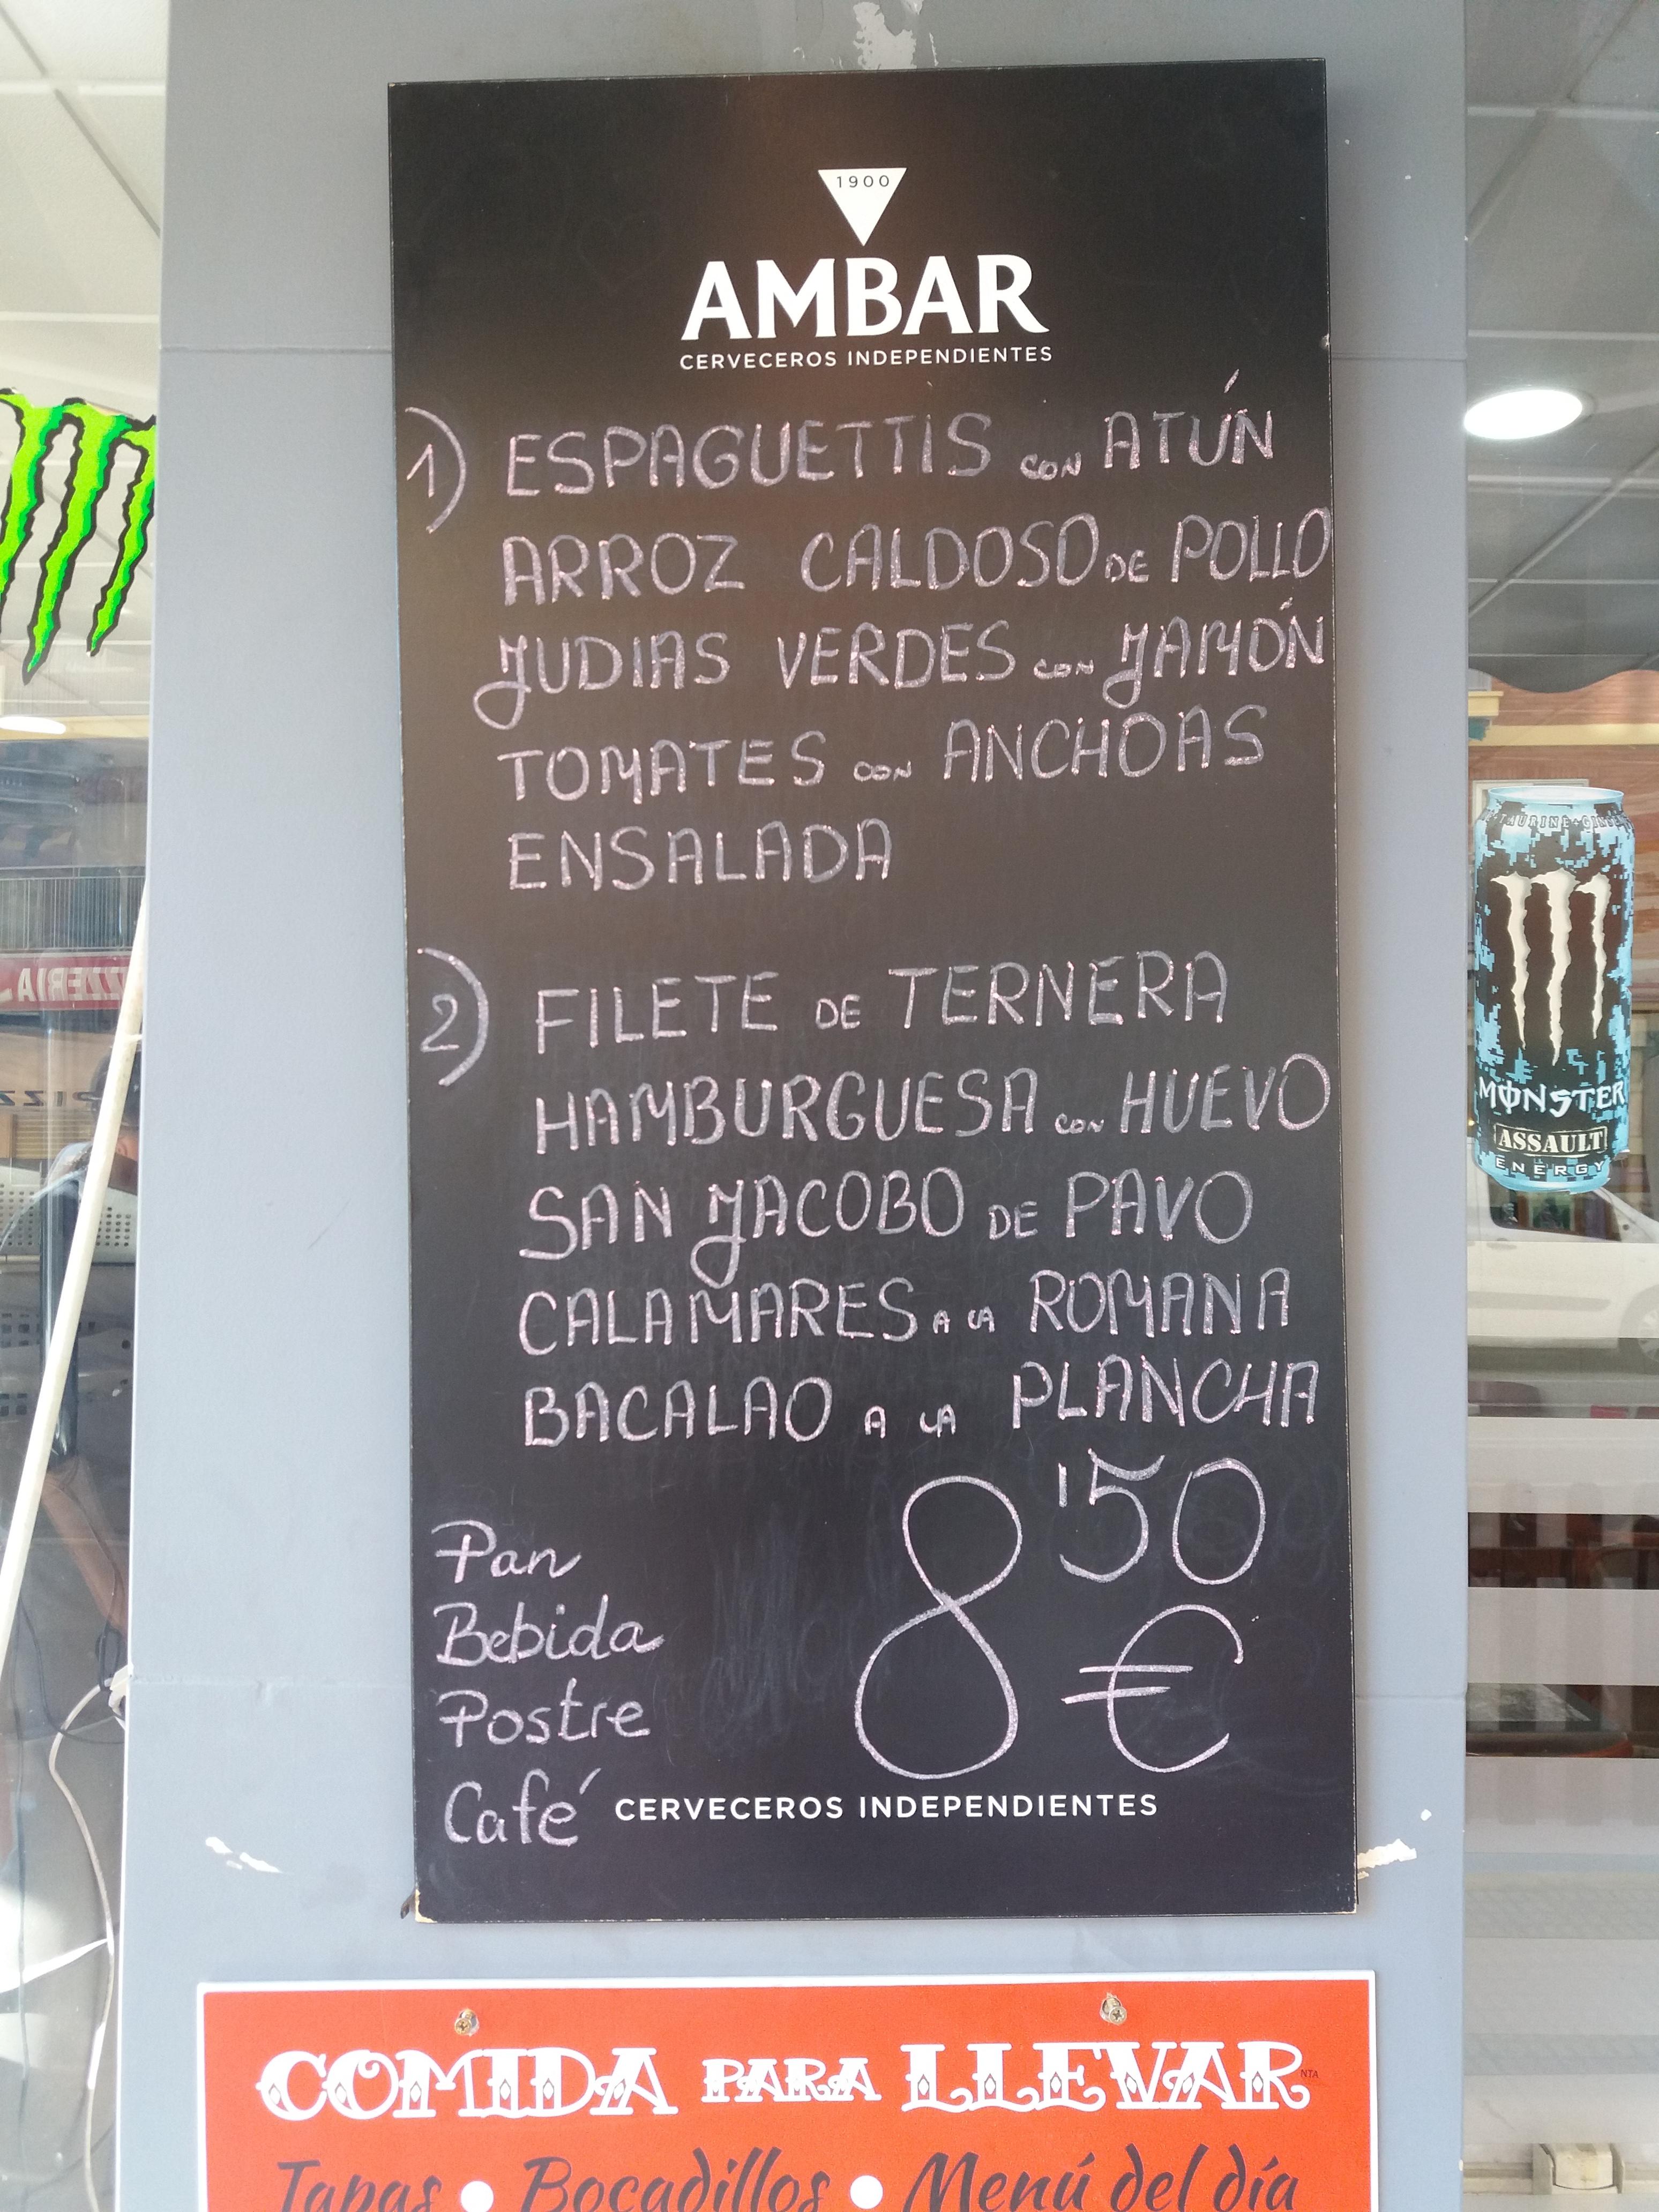 1900
AMBAR
CERVECEROS INDEPENDIENTES
1) ESPAGUETTIS CON ATÚN
ARROZ CALDOSO DE POLLO
JUDIAS VERDES CON JAMÓN
TOMATES CON ANCHOAS
ENSALADA
2) FILETE DE TERNERA
HAMBURGUESA CON HUEVO
SAN JACOBO DE PAVO
CALAMARES A LA ROMANA
BACALAO A LA PLANCHA
8'50 €
Pan
Bebida
Postre
Café
CERVECEROS INDEPENDIENTES
COMIDA PARA LLEVAR
Tapas • Bocadillos • Menú del día
MONSTER
ASSAULT
ENERGY